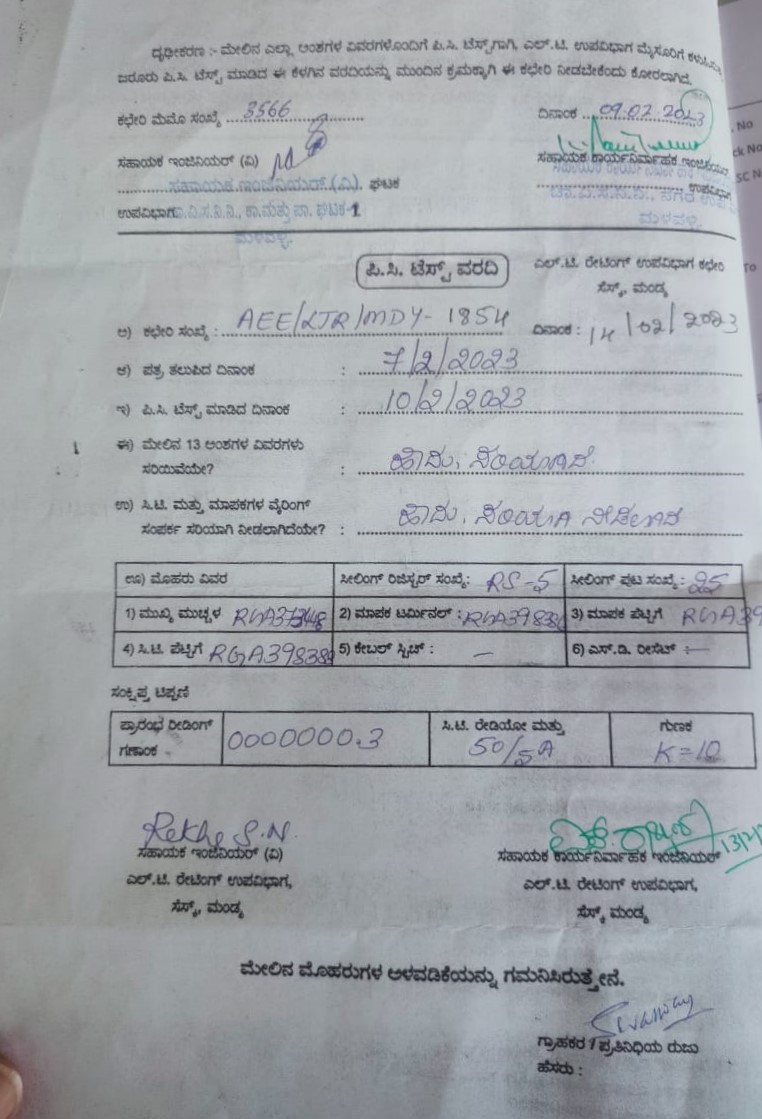 ದೃಢೀಕರಣ :- ಮೇಲಿನ ಎಲ್ಲಾ ಅಂಶಗಳ ವಿವರಗಳೊಂದಿಗೆ ಪಿ.ಸಿ. ಟೆಸ್ಟ್‌ಗಾಗಿ, ಎಲ್.ಟಿ. ಉಪವಿಭಾಗ ಮೈಸೂರಿಗೆ
ಜರೂರು ಪಿ.ಸಿ. ಟೆಸ್ಟ್ ಮಾಡಿದ ಈ ಕೆಳಗಿನ ವರದಿಯನ್ನು ಮುಂದಿನ ಕ್ರಮಕ್ಕಾಗಿ ಈ ಕಛೇರಿ ನೀಡಬೇಕೆಂದು ಕೋರಲಾಗಿದೆ.
ಕಛೇರಿ ಮೆಮೊ ಸಂಖ್ಯೆ 3566 ದಿನಾಂಕ 09.02.2023
ಸಹಾಯಕ ಇಂಜಿನಿಯರ್ (ವಿ) ಸಹಾಯಕ ಕಾರ್ಯನಿರ್ವಾಹಕ ಇಂಜಿನಿಯರ್
ಸಹಾಯಕ ಇಂಜಿನಿಯರ್ (ವಿ). ಘಟಕ ಉಪವಿಭಾಗ
ಉಪವಿಭಾಗ ಘಟಕ-1 ಮಳವಳ್ಳಿ
ಮಳವಳ್ಳಿ.
ಪಿ.ಸಿ. ಟೆಸ್ಟ್ ವರದಿ ಎಲ್.ಟಿ. ರೇಟಿಂಗ್ ಉಪವಿಭಾಗ ಕಛೇರಿ
ಸೆಸ್ಕ್, ಮಂಡ್ಯ
ಅ) ಕಛೇರಿ ಸಂಖ್ಯೆ : AEE/LTR/MDY- 1854 ದಿನಾಂಕ : 14/02/2023
ಆ) ಪತ್ರ ತಲುಪಿದ ದಿನಾಂಕ : 7/2/2023
ಇ) ಪಿ.ಸಿ. ಟೆಸ್ಟ್ ಮಾಡಿದ ದಿನಾಂಕ : 10/2/2023
ಈ) ಮೇಲಿನ 13 ಅಂಶಗಳ ವಿವರಗಳು
ಸರಿಯಿವೆಯೇ? : ಹೌದು, ಸರಿಯಾಗಿದೆ.
ಉ) ಸಿ.ಟಿ. ಮತ್ತು ಮಾಪಕಗಳ ವೈರಿಂಗ್
ಸಂಪರ್ಕ ಸರಿಯಾಗಿ ನೀಡಲಾಗಿದೆಯೇ? : ಹೌದು, ಸರಿಯಾಗಿ ನೀಡಲಾಗಿದೆ
ಊ) ಮೊಹರು ವಿವರ ಸೀಲಿಂಗ್ ರಿಜಿಸ್ಟರ್ ಸಂಖ್ಯೆ: RS-5 ಸೀಲಿಂಗ್ ಪುಟ ಸಂಖ್ಯೆ : 25
1) ಮುಖ್ಯ ಮುಚ್ಚಳ 2) ಮಾಪಕ ಟರ್ಮಿನಲ್ : 3) ಮಾಪಕ ಪೆಟ್ಟಿಗೆ
4) ಸಿ.ಟಿ. ಪೆಟ್ಟಿಗೆ 5) ಕೇಬಲ್ ಸ್ವಿಚ್ : – 6) ಎಸ್.ಡಿ. ರೀಸೆಟ್ : –
ಸಂಕ್ಷಿಪ್ತ ಟಿಪ್ಪಣಿ
ಪ್ರಾರಂಭ ರೀಡಿಂಗ್ 0000000.3 ಸಿ.ಟಿ. ರೇಡಿಯೋ ಮತ್ತು ಗುಣಕ
ಗಣಾಂಕ 50/5A K=10
Rekha S.N.
ಸಹಾಯಕ ಇಂಜಿನಿಯರ್ (ವಿ) ಸಹಾಯಕ ಕಾರ್ಯನಿರ್ವಾಹಕ ಇಂಜಿನಿಯರ್
ಎಲ್.ಟಿ. ರೇಟಿಂಗ್ ಉಪವಿಭಾಗ, ಎಲ್.ಟಿ. ರೇಟಿಂಗ್ ಉಪವಿಭಾಗ,
ಸೆಸ್ಕ್, ಮಂಡ್ಯ ಸೆಸ್ಕ್, ಮಂಡ್ಯ
ಮೇಲಿನ ಮೊಹರುಗಳ ಅಳವಡಿಕೆಯನ್ನು ಗಮನಿಸಿರುತ್ತೇನೆ.
ಗ್ರಾಹಕರ / ಪ್ರತಿನಿಧಿಯ ರುಜು
ಹೆಸರು :